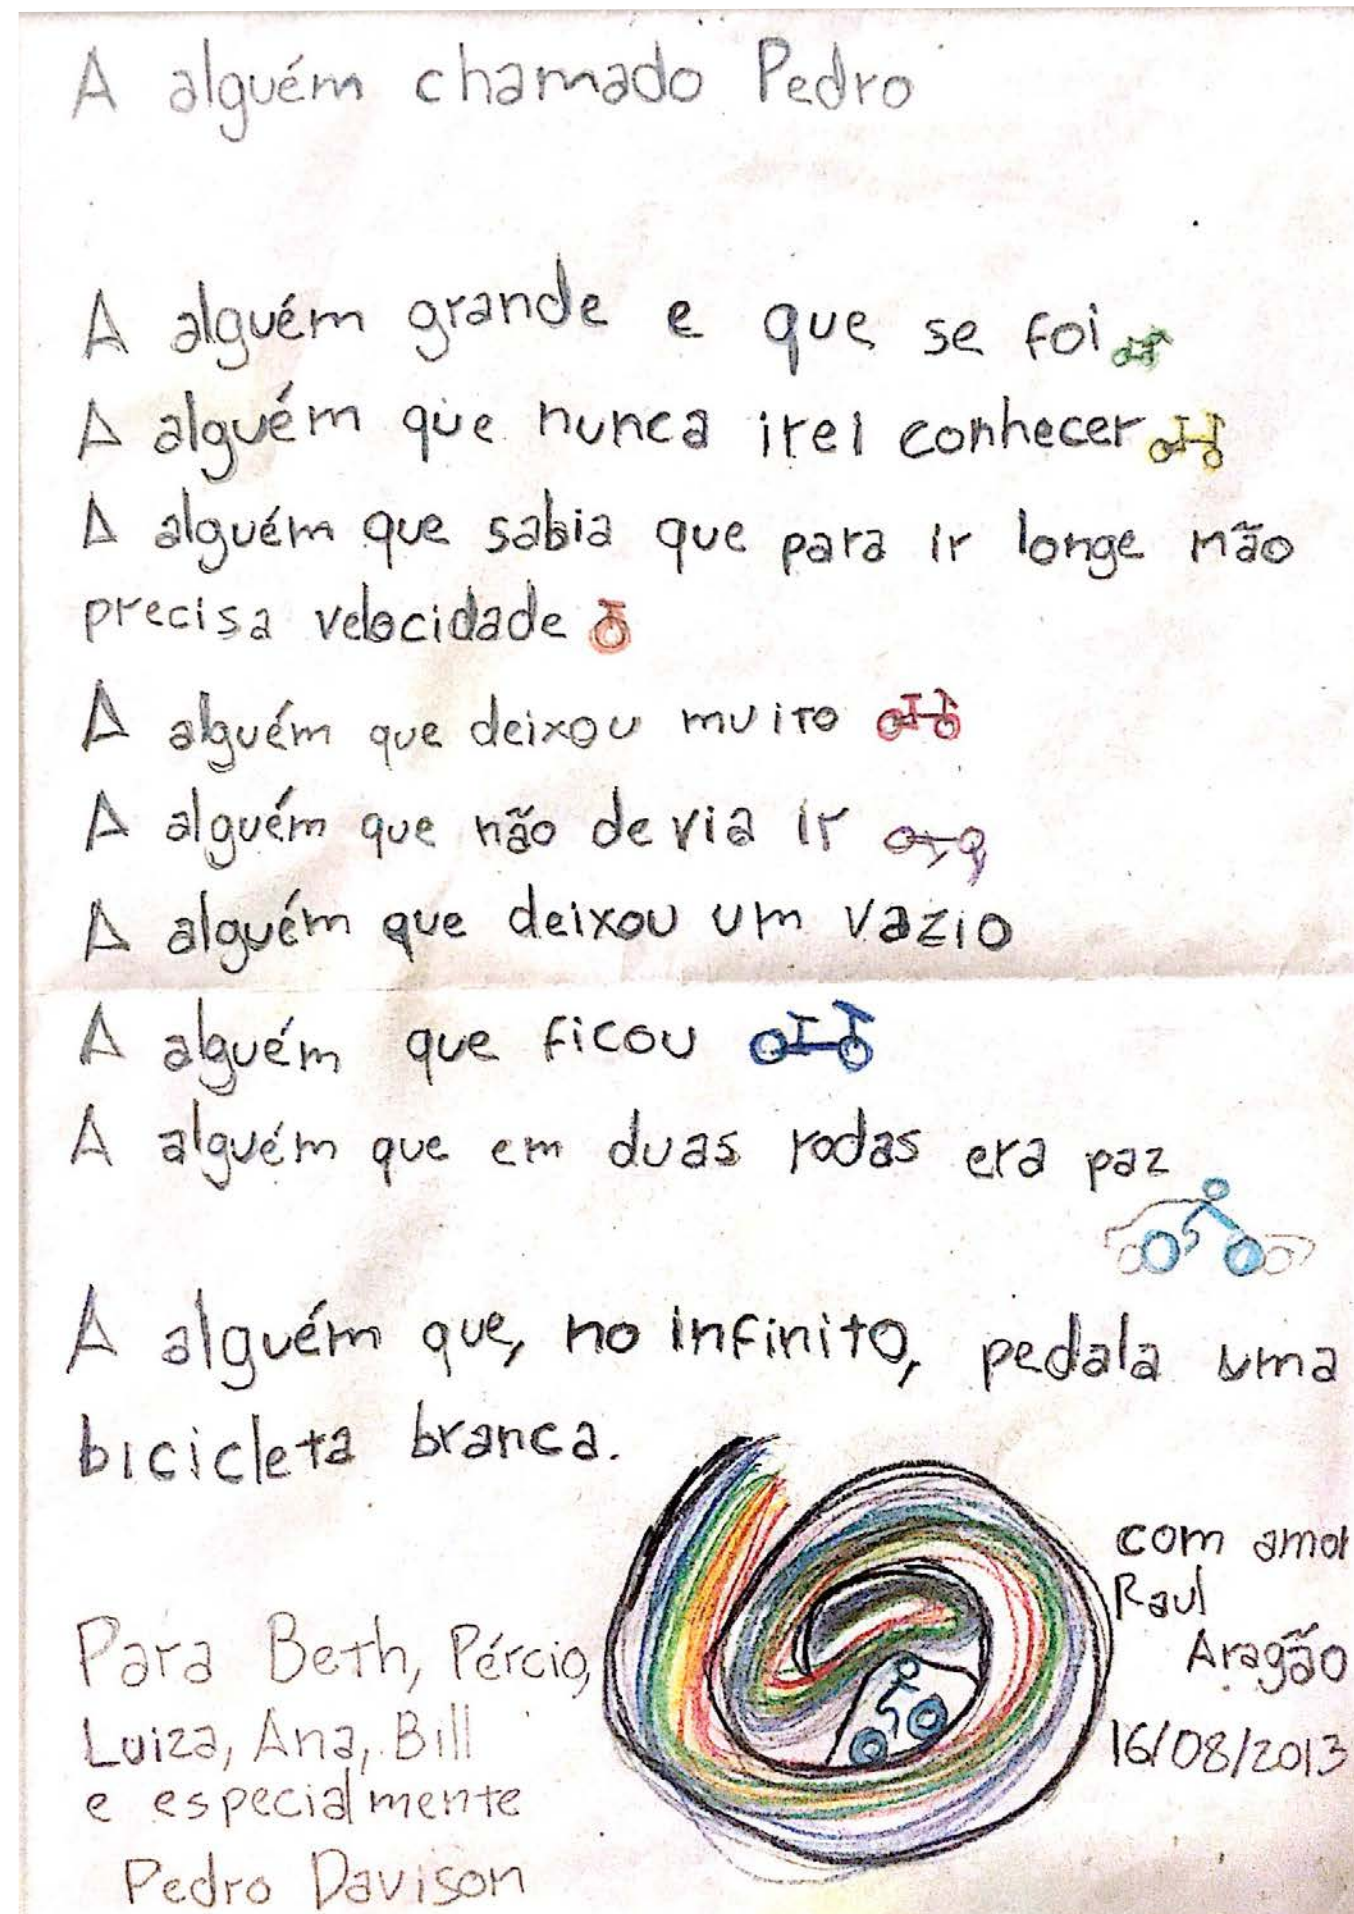 A alguém chamado Pedro
A alguém grande e que se foi
A alguém que nunca irei conhecer
A alguém que sabia que para ir longe não
precisa velocidade
A alguém que deixou muito
A alguém que não devia ir
A alguém que deixou um vazio
A alguém que ficou
A alguém que em duas rodas era paz
A alguém que, no infinito, pedala uma
bicicleta branca.
com amor
Raul
Aragão
16/08/2013
Para Beth, Pércio,
Luiza, Ana, Bill
e especialmente
Pedro Davison